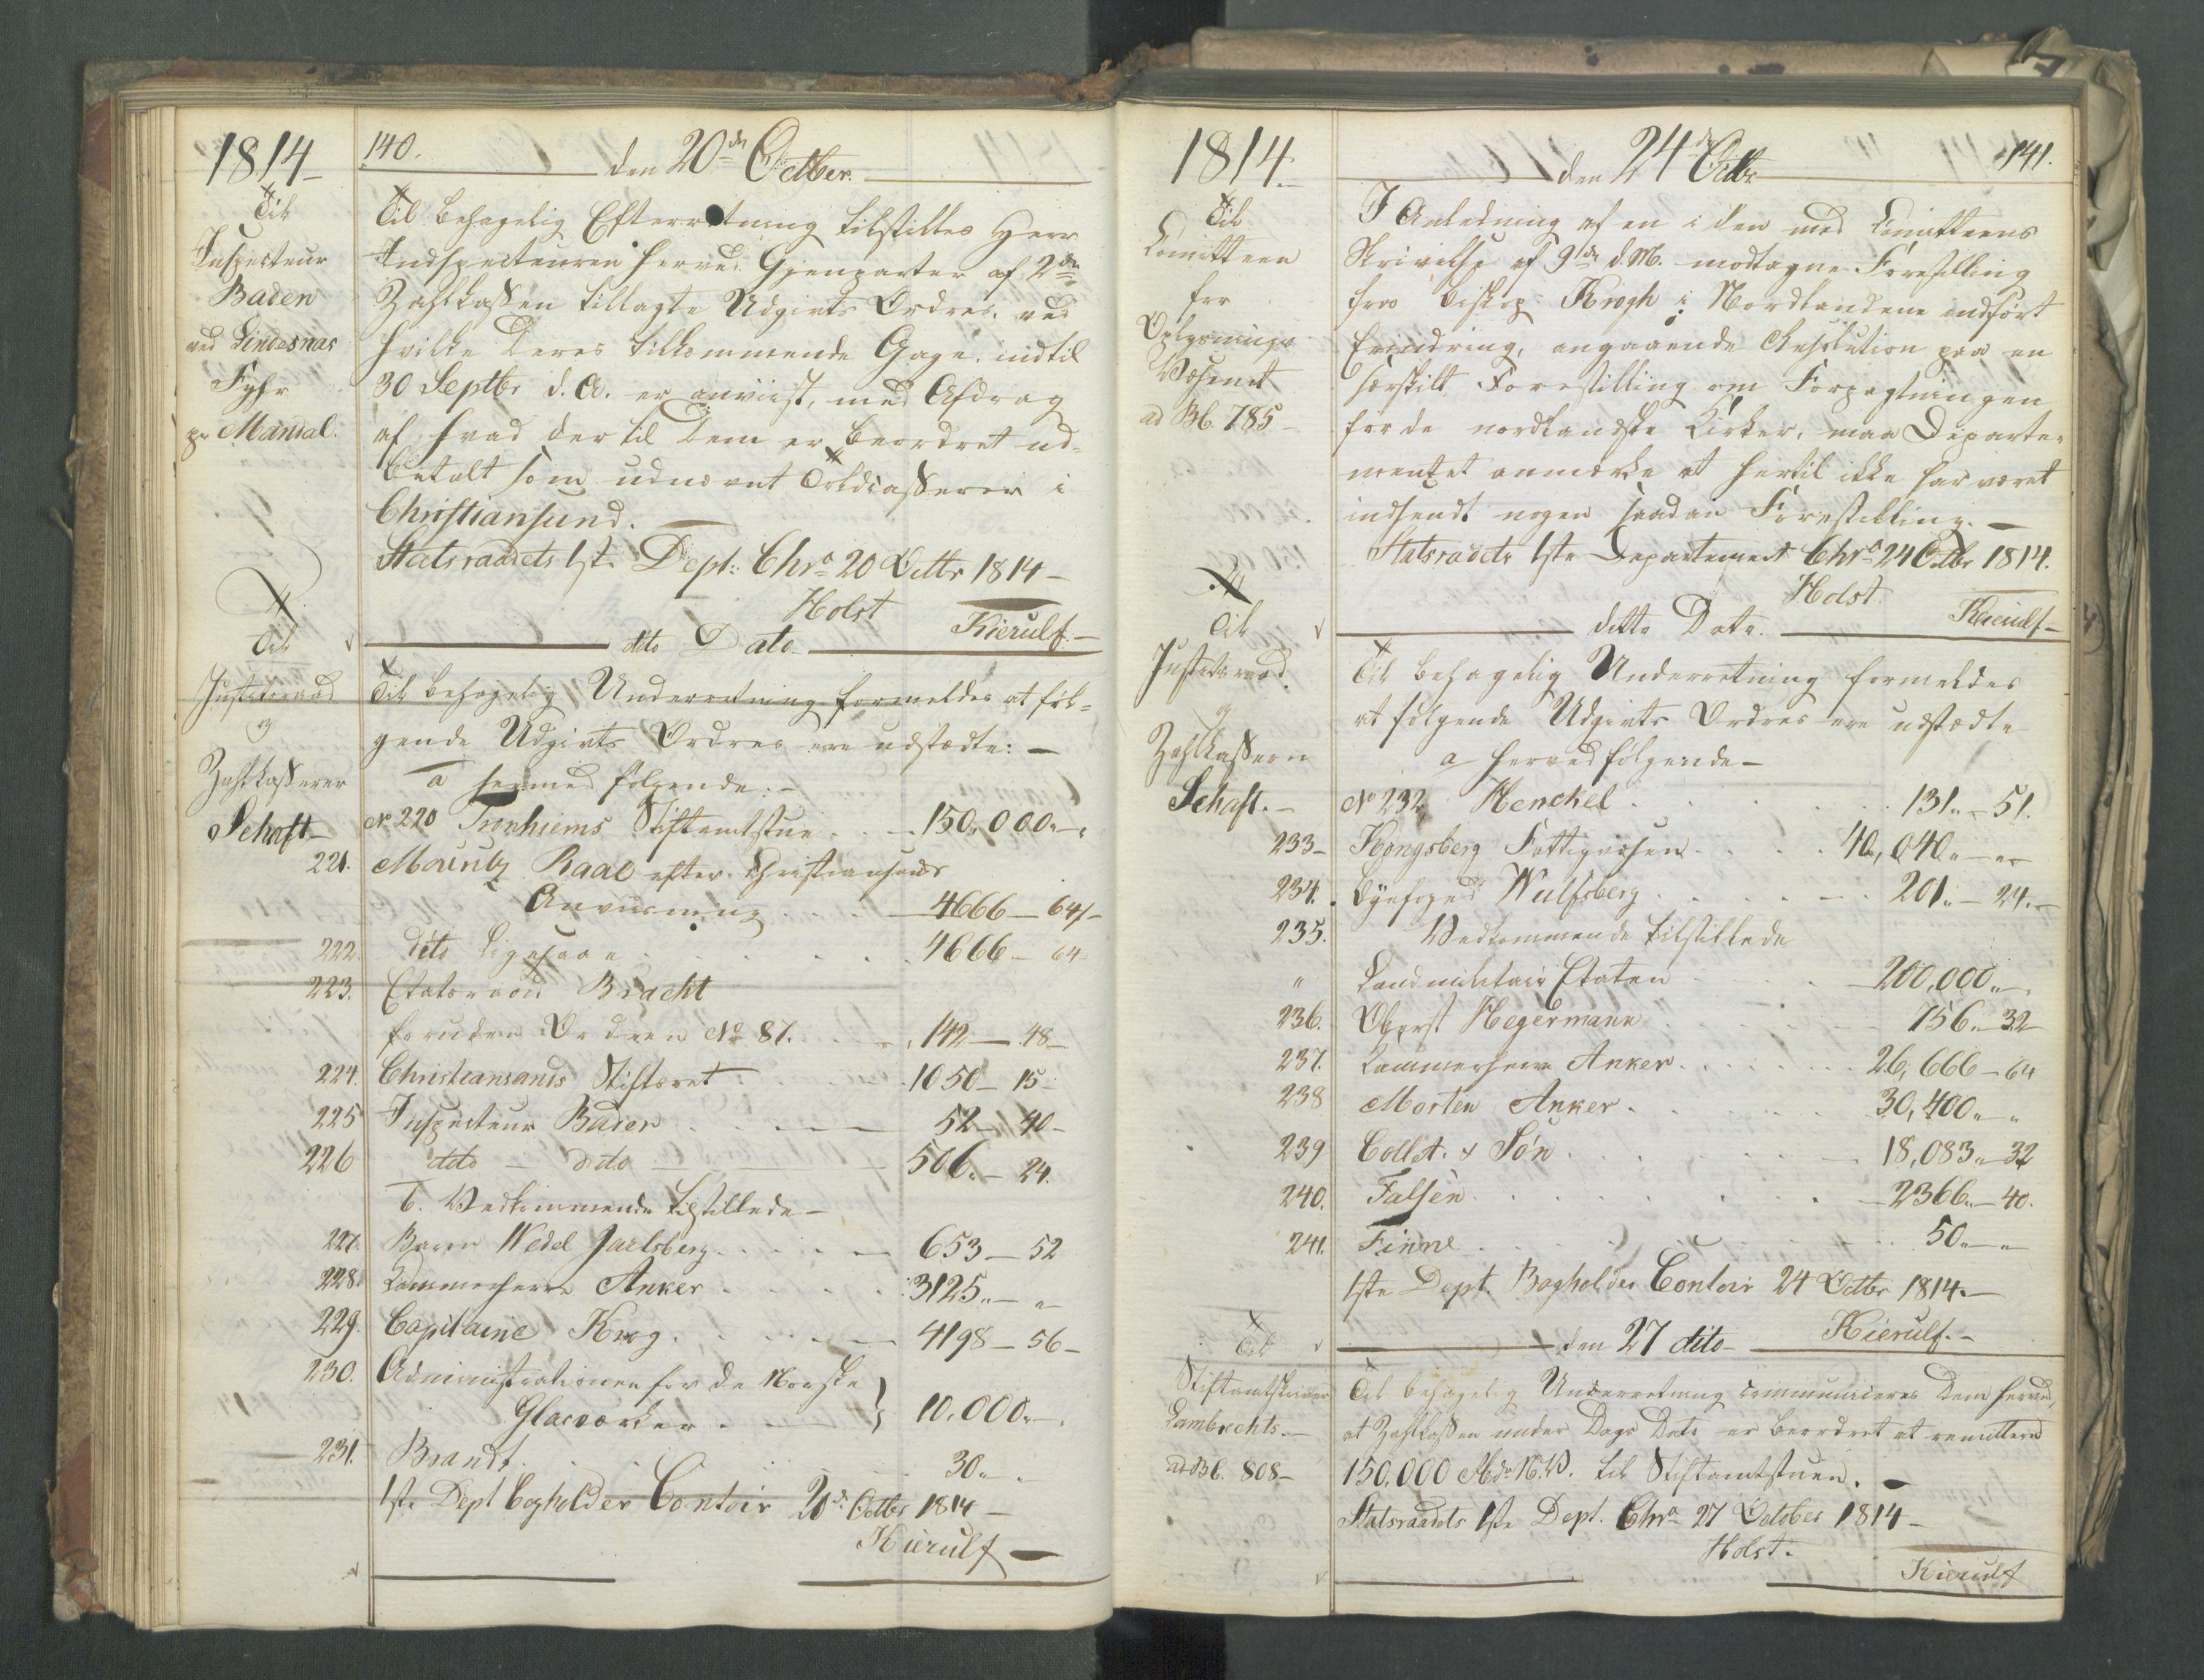 1814
140.
den 20de October.
Til
Inspecteur
Baden
ved Lindesnæs
Fyhr
pr Mandal.
Til behagelig Efterretning tilstilles Herr
Indspecteuren herved Gjenparter af 2de
Zahlkassen tillagte Udgivts Ordres, ved
hvilke Deres tilkommende Gage, indtil
30 Septbr d. A. er anviist, med Afdrag
af hvad der til Dem er beordret ud-
betalt som udnævnt Toldcasserer i
Christiansund.
Statsraadets 1ste Dept: Chra 20 Octbr 1814 -
Holst Kierulf. -
dito Dato
Til
Justitsraad
og
Zahlkasserer
Schaft -
Til behagelig Underretning formeldes at føl-
gende Udgivts Ordres ere udstædte: -
a hermed følgende: -
No 220 Tronhiems Stiftamtstue . . - 150,000. - "
221. Mouritz Raae efter Christiansands
Anviisning . . . 4666 - 64 -
222. dito Ligesaa . . . 4666 - 64
223. Etatsraad Bracht
foruden Ordren No 87. . . 142 - 48 -
224. Christiansands Stiftsret . . . 1050 - 15 -
225 Inspecteur Baden . . . 52 - 40 -
226 dito - dito - 506. - 24.
b. Vedkommende tilstillede -
227. Baron Wedel Jarlsberg . . . 653 - 52
228. Kammerherre Anker . . . 3125. - "
229. Capitaine Krog . . . 4198 - 56 -
230. Administrationen for de Norske
Glasværker . . . 10,000. - .
231. Brandt . . . 30. - .
1ste Dept Bogholder Contoir 20de Octbr 1814 -
Kierulf -
1814.
141.
den 24de Octbr
Til
Comitteen
for
Oplysnings
Væsenet
ad Bb. 785 -
I Anledning af en i den med Comitteens
Skrivelse af 9de d. M. modtagne Forestilling
fra Biskop Krogh i Nordlandene indført
Erindring, angaaende Resolution paa en
særskilt Forestilling om Forpagtningen
for de nordlandske Kirker, maa Departe-
mentet anmærke at hertil ikke har været
indsendt nogen saadan Forestilling. -
Statsraadets 1ste Departement Chra 24 Octbr 1814.
Holst. Kierulf -
ditto Dato.
Til
Justitsraad
og
Zahlkassern
Schaft. -
Til behagelig Underretning formeldes
at følgende Udgivts Ordres ere udstædte
a herved følgende -
No 232 Henckel . . . 131. - 51.
233 - Kongsberg Fattigvæsen . . . 40,040. - "
234. Byefoged Wulfsberg . . . 201. - 24. -
235. Vedkommende tilstillede
" Landmilitair Etaten . . . 200,000. -
236. Oberst Hegermann . . . 756. - 32
237. Kammerherre Anker . . . 26,666 - 64
238 Morten Anker . . . 30,400. - "
239 Collet & Søn . . . 18,083. - 32
240. Falsen . . . 2366. - 40.
241. Finne . . . 50. - "
1ste Dept. Bogholder Contoir 24 Octbr 1814. -
Kierulf. -
den 27 dito -
Til
Stiftamtskriver
Lambrechts. -
ad Bb. 808 -
Til behagelig Underretning communiceres Dem herved,
at Zahlkassen under Dags Dato er beordret at remittere
150,000 Rbdr N. V. til Stiftamtstuen. -
Statsraadets 1ste Dept. Chra 27 October 1814 -
Holst. Kierulf